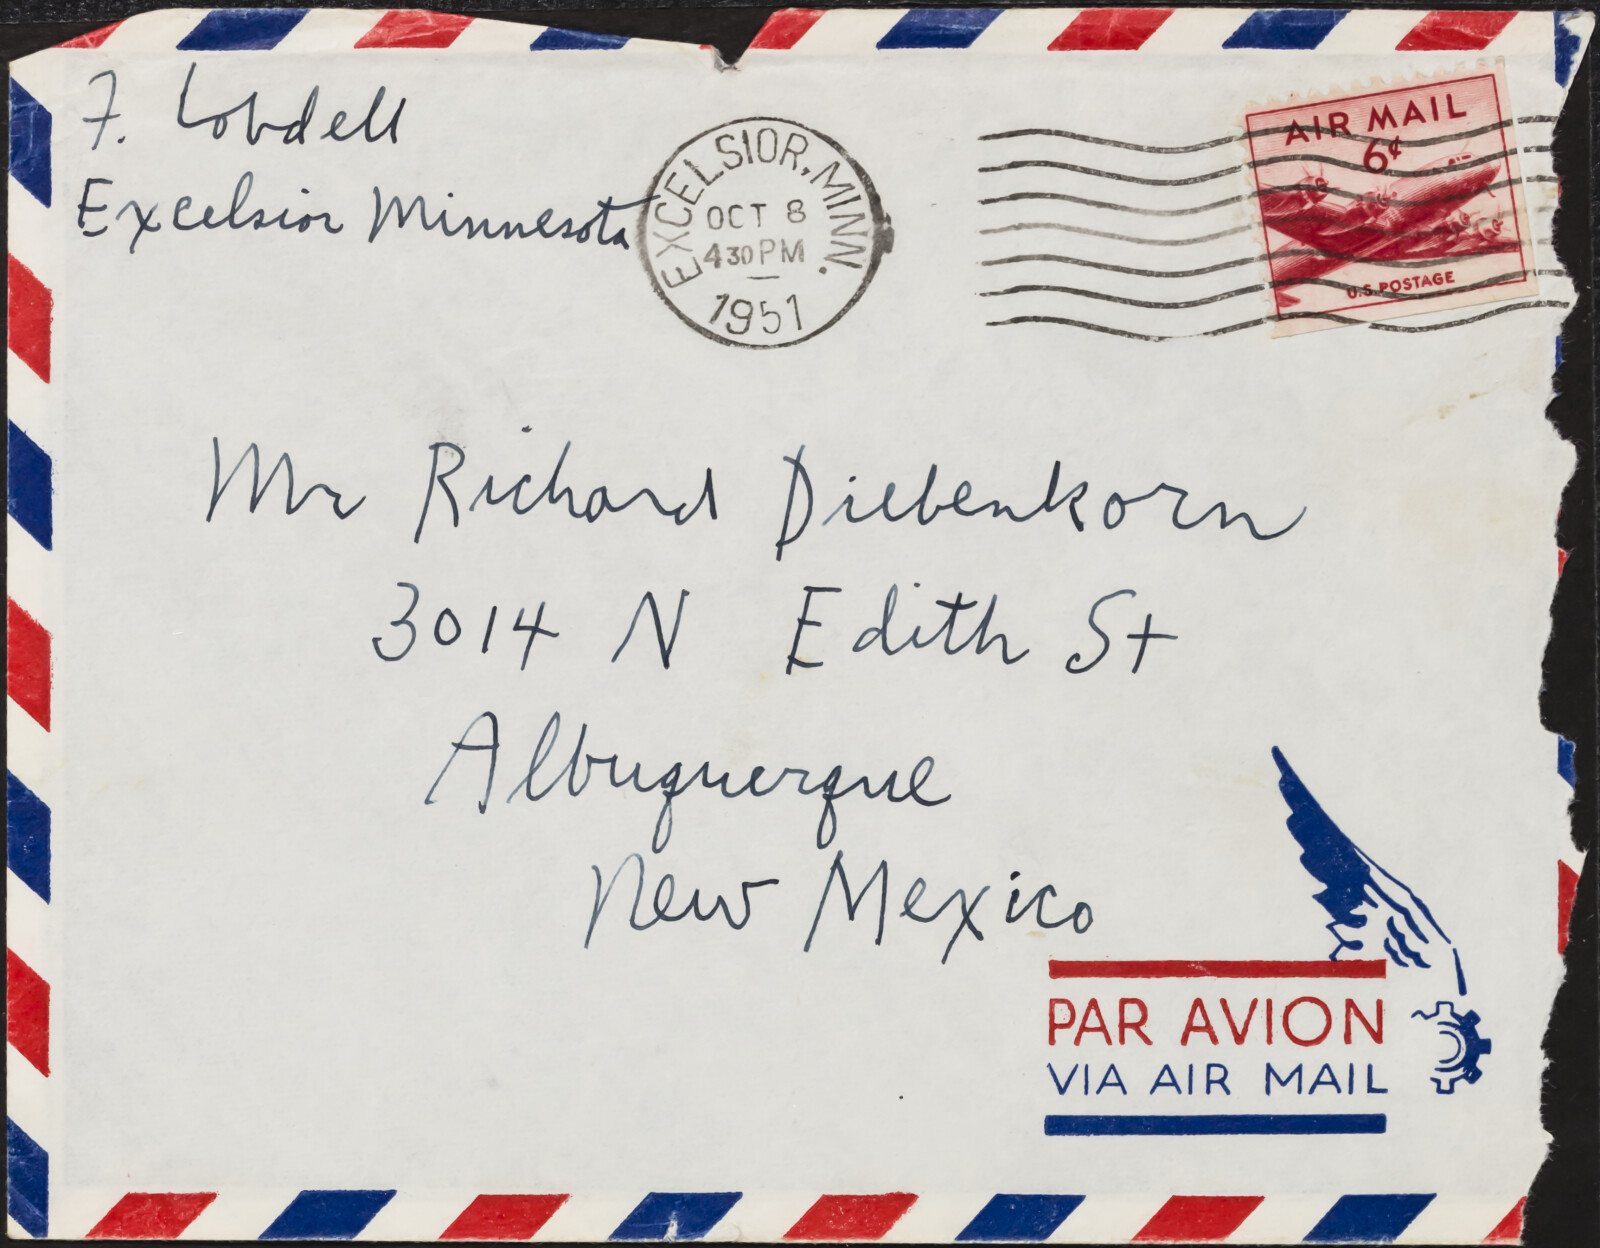 F. Lobdell
Excelsior Minnesota
EXCELSIOR, MINN.
OCT 8
430 PM
1951
AIR MAIL
6¢
U.S. POSTAGE
Mr Richard Diebenkorn
3014 N Edith St
Albuquerque
New Mexico
PAR AVION
VIA AIR MAIL